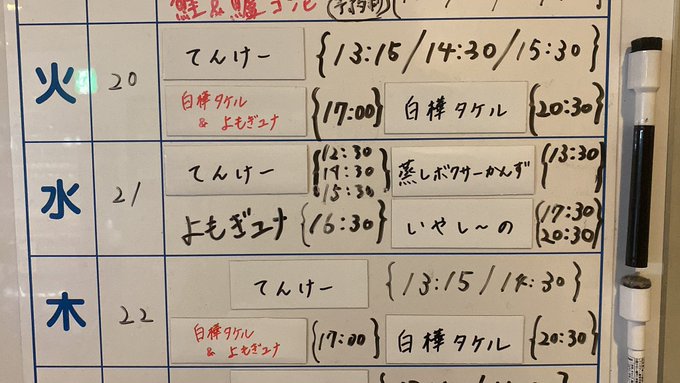 鮭&鱷コラ
火 20 てんけー {13:15/14:30/15:30}
白樺タケル & よもぎユナ {17:00} 白樺タケル {20:30}
水 21 てんけー {12:30 14:30 15:30} 蒸しボクサーかんず {13:30}
よもぎユナ {16:30} いやし〜の {17:30 20:30}
木 22 てんけー {13:15/14:30}
白樺タケル & よもぎユナ {17:00} 白樺タケル {20:30}